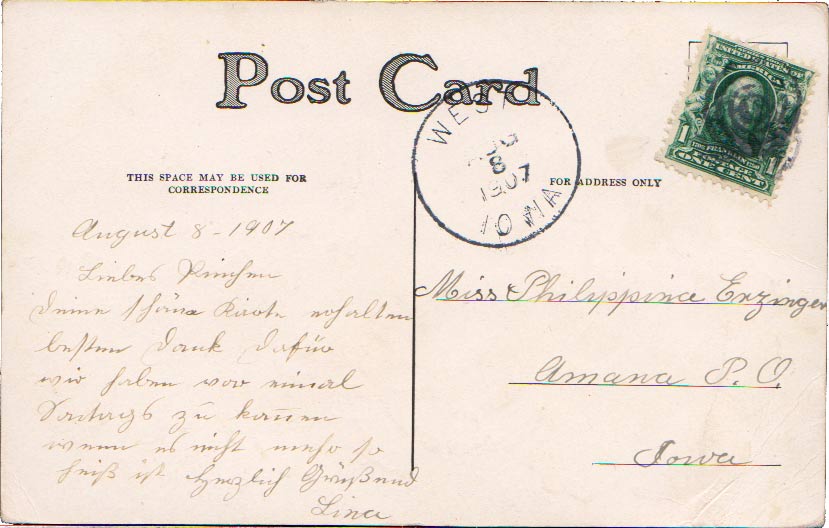 Post Card
THIS SPACE MAY BE USED FOR
CORRESPONDENCE
FOR ADDRESS ONLY
WEST
8
1907
IOWA
UNITED STATES OF
AMERICA
1 FRANKLIN 1
POSTAGE
ONE CENT
August 8 - 1907
Liebes Pinchen
Deine schöne Karte erhalten
besten Dank dafür
wir haben vor einmal
Sontags zu kommen
wenn es nicht mehr so
heiß ist Herzlich Grüßend
Lina
Miss Philippina Erzinger
Amana P. O.
Iowa